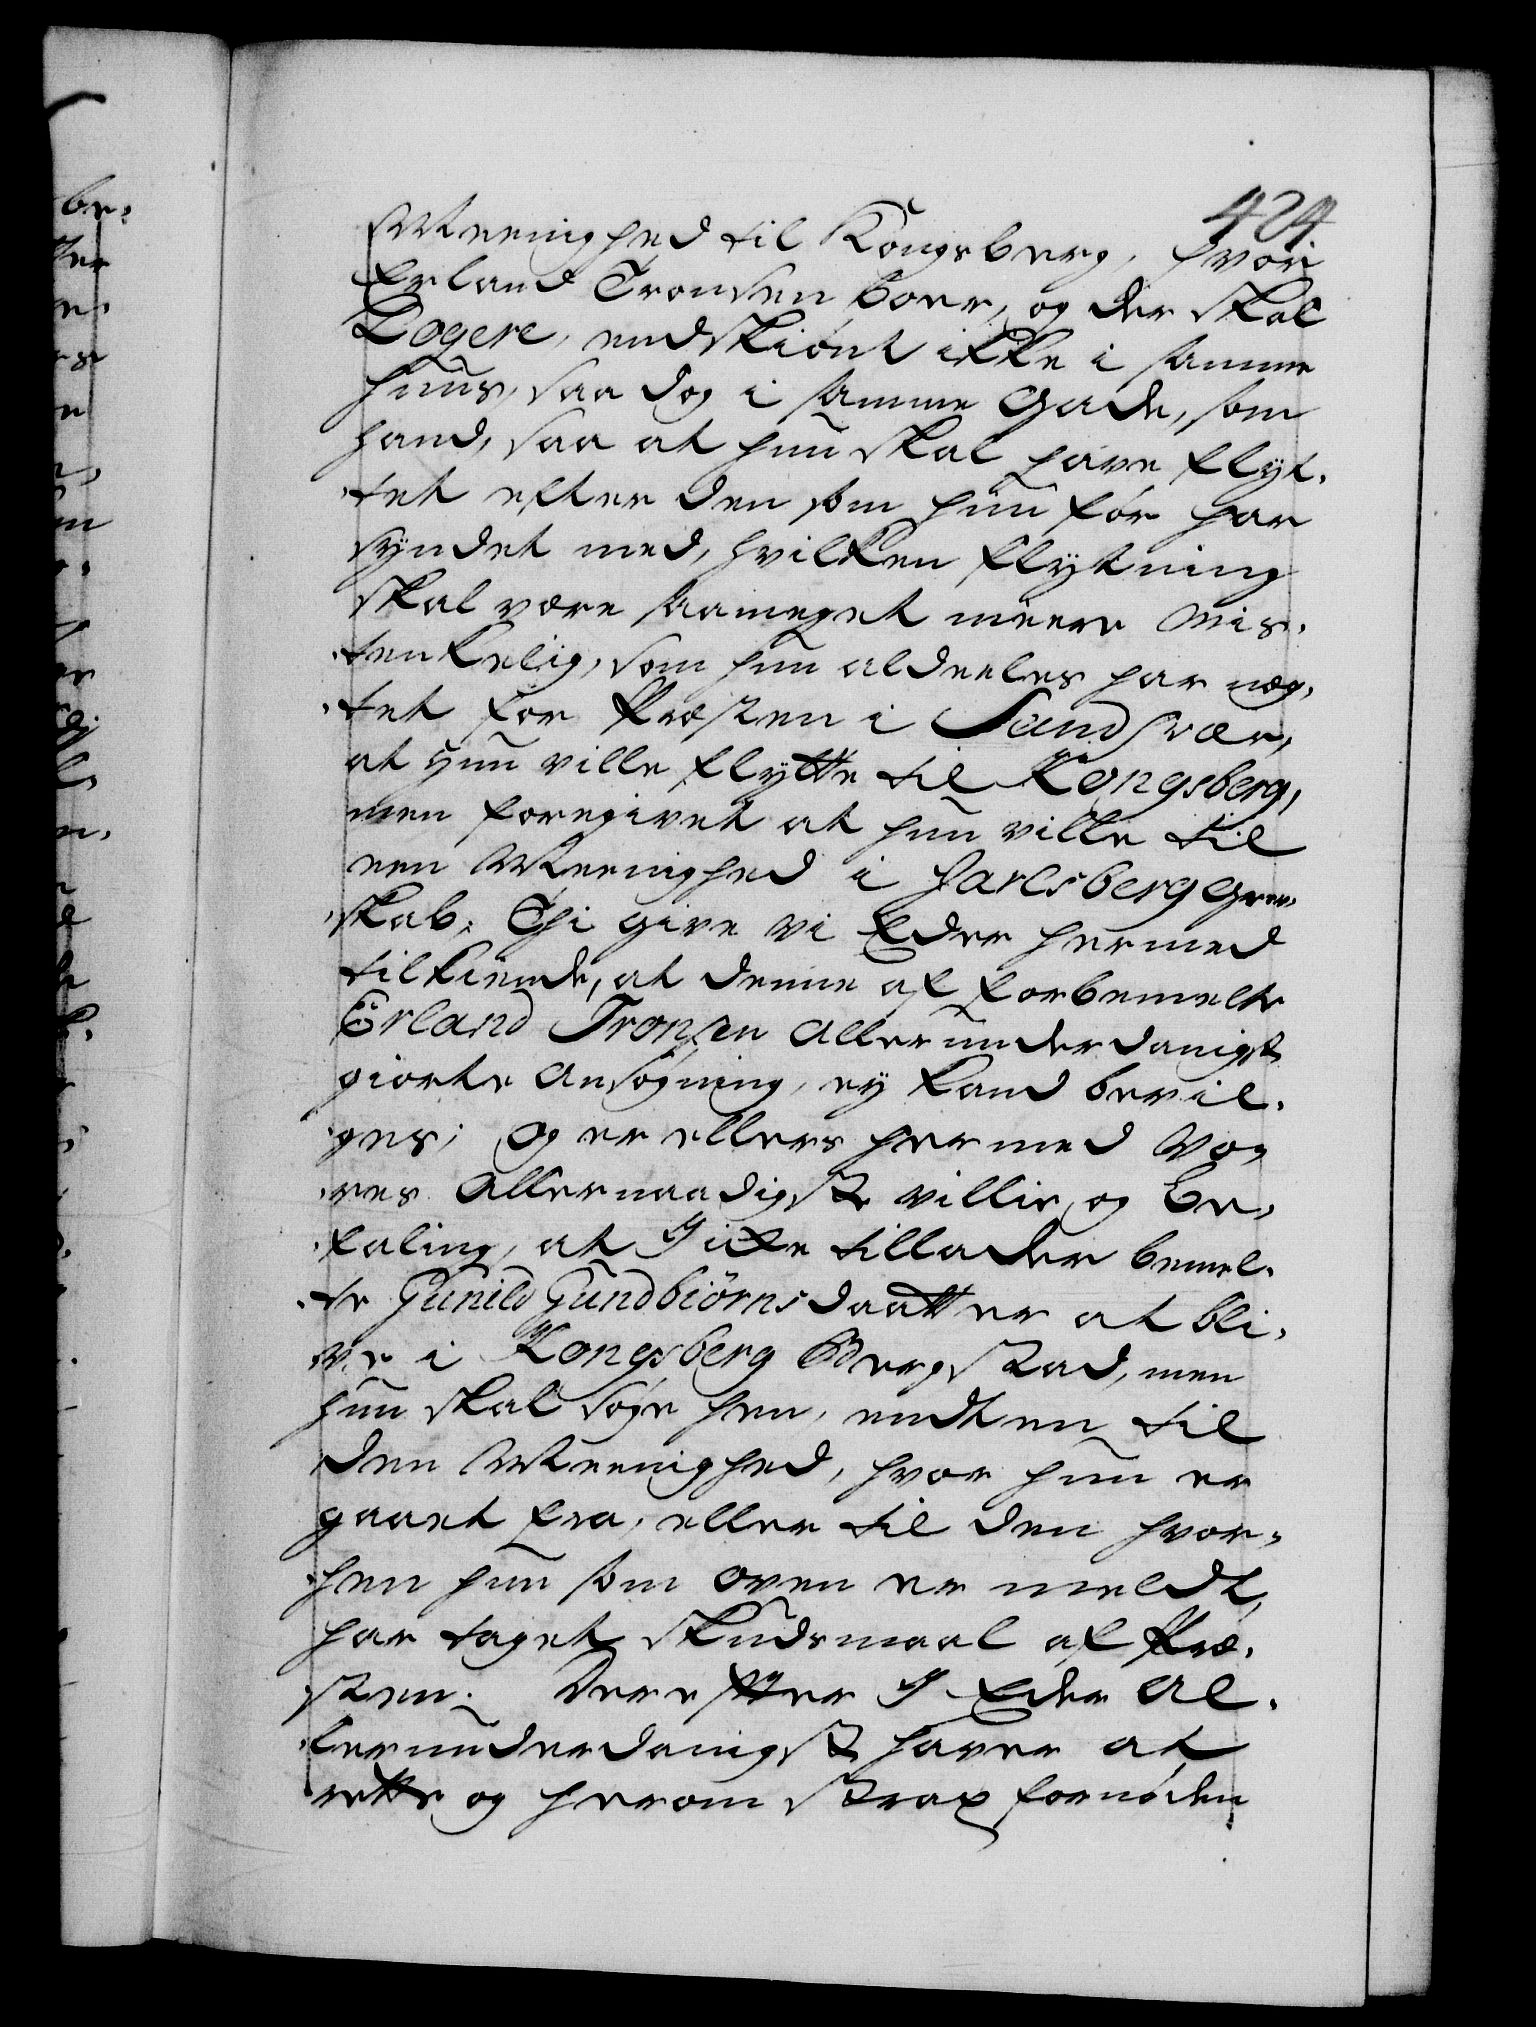 424
Meenighed til Kongsberg, hvor
Erland Tronsen boer, og der skal
Logere, endskiønt ikke i samme
Huus, saa dog i samme Gade, som
hand, saa at hun skal have flyt-
tet efter den som hun før har
syndet med, hvilken flytning
skal være saameget meere Mis-
tenkelig, som hun aldeeles har næg-
tet for Præsten i Sandsvær,
at hun ville flytte til Kongsberg,
men foregivet at hun ville til
een Meenighed i Jarlsberg Grev-
skab; Thi give vi Eder hermed
tilkiende, at denne af forbemelte
Erland Tronsen allerunderdanigst
giorte Ansøgning, ey kand bevil-
ges; Og er ellers hermed Vo-
res Allernaadigste villie og be-
faling, at I icke tillader bemel-
te Gunild Gundbiørnsdaatter at bli-
ve i Kongsberg Bergstad, men
hun skal søge hen, endten til
den Meenighed, hvor hun er
gaaet fra, eller til den hvor-
hen hun som oven er meldt,
har taget skudsmaal af Præ-
sten. Derefter I Eder Al-
lerunderdanigst haver at
rette og herom strax fornøden
be-